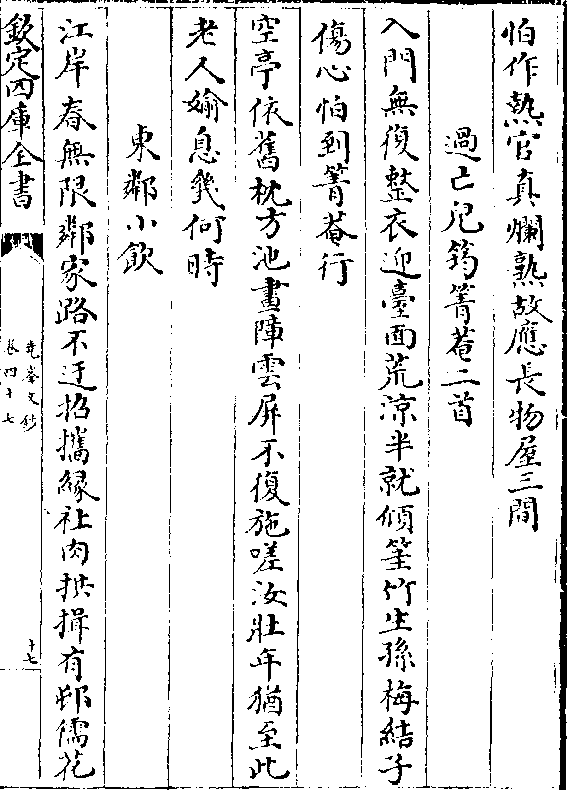 怕作熱官真爛熟故應長物屋三間
過亡兒筠箐菴二首
入門無復整衣迎臺面荒涼半就傾筀竹生孫梅結子
傷心怕到箐菴行
空亭依舊枕方池畫障雲屏不復施嗟汝壯年猶至此
老人媮息幾何時
東鄰小飲
江岸春無限鄰家路不迂招攜緣社肉拱揖有邨儒花
欽定四庫全書
堯峯文鈔
卷四十七
十七